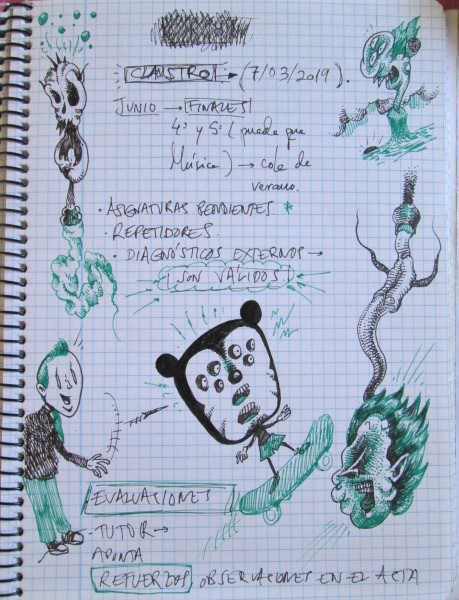 CLAUSTRO → (7/03/2019).
JUNIO → FINALES
4º y 5º (puede que
Música) → cole de
verano.
· ASIGNATURAS PENDIENTES *
· REPETIDORES.
· DIAGNÓSTICOS EXTERNOS →
¡SON VÁLIDOS!
EVALUACIONES
- TUTOR →
APUNTA
REFUERZOS OBSERVACIONES EN EL ACTA